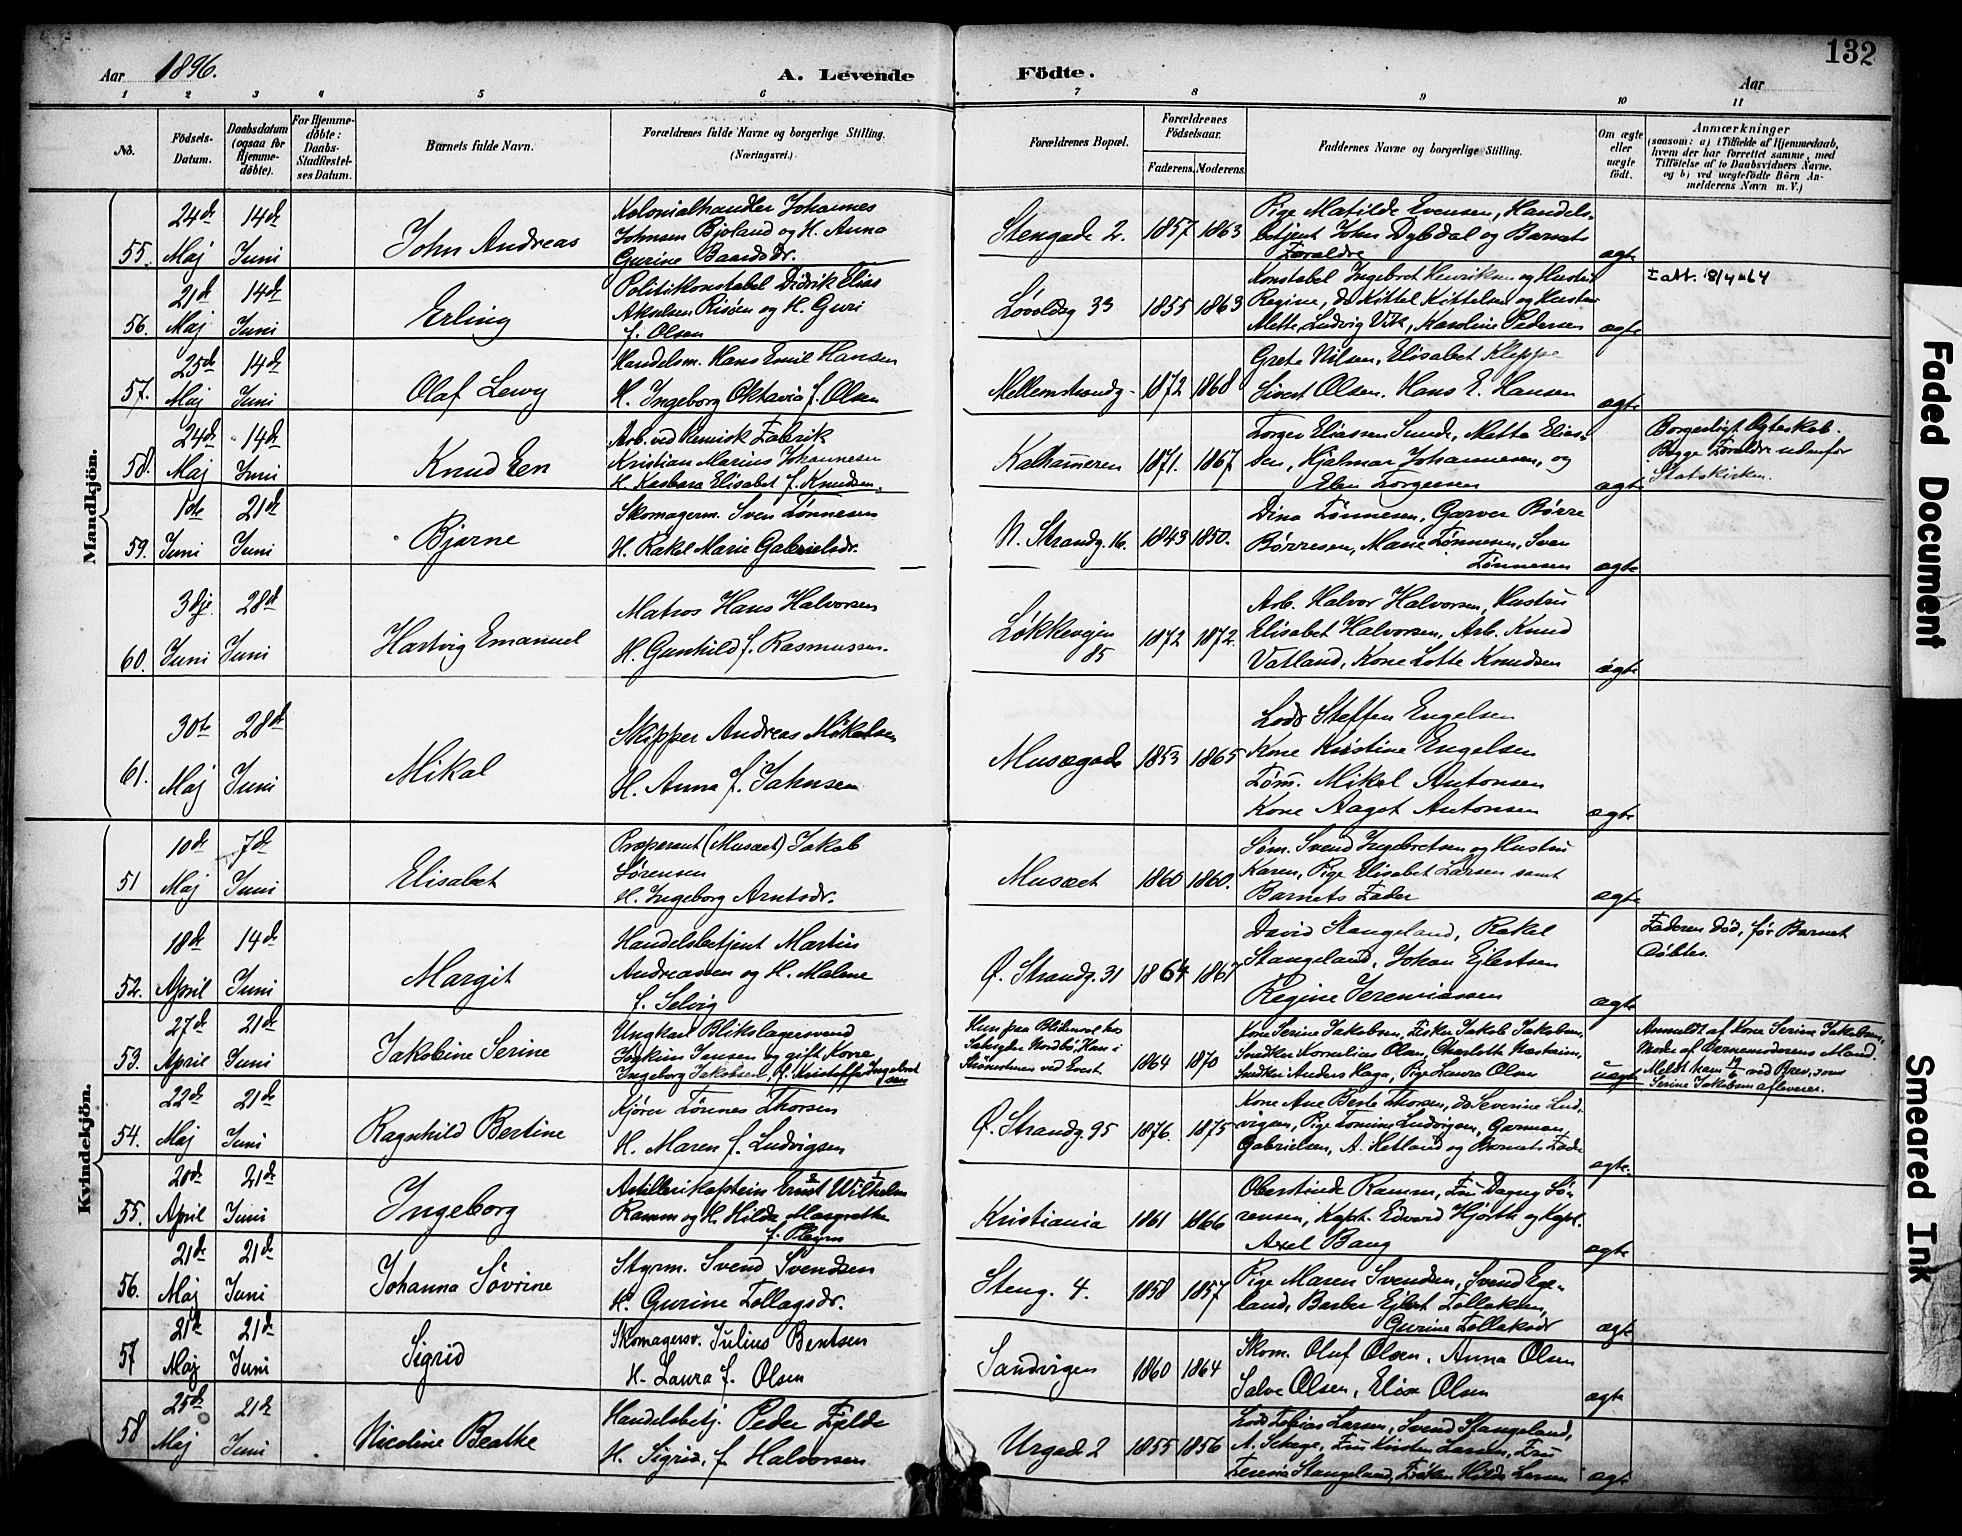 132
Aar 1896. A. Levende Födte. Aar
1 2 3 4 5 6 7 8 9 10 11
No.
Födsels-Datum.
Daabsdatum (ogsaa for Hjemme-döbte).
For Hjemme-döbte: Daabs-Stadfæstel-ses Datum.
Barnets fulde Navn.
Forældrenes fulde Navne og borgerlige Stilling.
(Næringsvei.)
Forældrenes Bopæl.
Forældrenes Födselsaar.
Faderens. Moderens.
Faddernes Navne og borgerlige Stilling.
Om ægte eller uægte født.
Anmærkninger
(saasom: a) i Tilfælde af Hjemmedaab, hvem der har forrettet samme, med Tilføielse af to Daabsvidners Navne, og b) ved uægtefödte Börn An-melderens Navn m. V.)
Mandkjön.
55. 24de Maj 14de Juni John Andreas
Kolonialhandler Johannes
Johnsen Bjoland og H. Anna
Gurine Baardsdr.
Stengade 2. 1857 1863
Pige Matilde Evensen, Handels-
betjent John Dybdal og Barnets
Forældre
ægte
56. 21de Maj 14de Juni Erling
Politikonstabel Didrik Elias
Akselsen Risøen og H. Guri
f. Olsen
Løvoldsg 33 1855 1863
Konstabel Ingebret Henriksen og Hustru
Regine, do Kittel Kittelsen og Hustru
Mette, Ludvig Vik, Karoline Pedersen
ægte
57. 25de Maj 14de Juni Olaf Lewy
Handelsm. Hans Emil Hansen
H. Ingeborg Oktavia f. Olsen
Mellemstrandg. 1872 1868
Grete Nilsen, Elisabet Kleppe
Sivert Olsen, Hans E. Hansen
ægte
58. 24de Maj 14de Juni Knud Een
Arb. ved Kemisk Fabrik
Kristian Marius Johannesen
H. Barbara Elisabet f. Knudsen.
Kalhameren 1871. 1867
Torger Eliassen Sunde, Mette Elias-
sen, Hjalmar Johannesen, og
Elen Torgersen
ægte
Borgerligt Ægteskab.
Begge Forældre udenfor
Statskirken.
59. 1ste Juni 21de Juni Bjarne
Skomagerm. Sven Tønnesen
H. Rakel Marie Gabrielsdr.
N. Strandg. 16. 1843 1850.
Dina Tønnesen, Garver Børre
Børresen, Marie Tønnesen, Sven
Tønnesen
ægte
60. 3dje Juni 28de Juni Hartvig Emanuel
Matros Hans Halvorsen
H. Gunhild f. Rasmussen.
Løkkevejen
85
1872 1872.
Arb. Halvor Halvorsen, Hustru
Elisabet Halvorsen, Arb. Knud
Vatland, Kone Lotte Knudsen
ægte
61. 30te Maj 28de Juni Mikal
Skipper Andreas Mikalsen
H. Anna f. Jahnsen
Musægade 1853 1865
Lods Steffen Engelsen
Kone Kristine Engelsen
Tøm. Mikal Antonsen
Kone Aagot Antonsen
ægte
Kvindekjön.
51 10de Maj 7de Juni Elisabet
Præparant (Musæet) Jakob
Sørensen
H. Ingeborg Arntsdr.
Musæet 1860 1860.
Tøm. Svend Ingebretsen og Hustru
Karen, Pige Elisabet Larsen samt
Barnets Fader
ægte
52. 18de April 14de Juni Margit
Handelsbetjent Martin
Andreassen og H. Malene
f. Selvig
Ø. Strandg. 31 1864 1867
David Stangeland, Rakel
Stangeland, Johan Ejlertsen
Regine Jeremiassen
ægte
Faderen død, før Barnet
døbtes.
53. 27de April 21de Juni Jakobine Serine
Ungkarl Blikslagersvend
Joakim Jensen og gift Kone
Ingeborg Jakobsen, f. Kristoffer Ingebret
sen
1864 1870
Kone Serine Jakobsen, Fisker Jakob Jakobsen,
Snedker Kornelius Olsen, Charlotte Nærheim,
Snedker Anders Haga, Pige Laura Olsen
uægte
Anmeldt af Kone Serine Jakobsen,
Moder af Barnemoderens Mand.
Meldt ham 19/6 ved Brev, som
Serine Jakobsen afleverer.
54. 22de Maj 21de Juni Ragnhild Bertine
Kjører Tønnes Thorsen
H. Maren f. Ludvigsen
Ø. Strandg 95 1876. 1875
Kone Ane Berte Thorsen, do Severine Lud-
vigsen, Pige Tomine Ludvigsen, German
Gabrielsen, A. Hetland og Barnets Fader
ægte.
55. 20de April 21de Juni Ingeborg
Artillerikaptein Ernst Wilhelm
Ramm og H. Hilda Margrethe
f. Pleym
Kristiania 1861 1866
Oberstinde Ramm, Fru Dagny Sø-
rensen, Kapt. Edvard Hjorth og Kapt.
Axel Bang
ægte
56. 21de Maj 21de Juni Johanna Søvrine
Styrm. Svend Svendsen
H. Gurine Tollagsdr.
Steng. 4. 1858 1857
Pige Maren Svendsen, Svend Ege-
land, Barber Ejlert Tollaksen,
Gurine Tollaksdr
ægte
57 21de Maj 21de Juni Sigrid
Skomagersv. Julius Bentsen
H. Laura f. Olsen
Sandvigen 1860 1864
Skom. Oluf Olsen, Anna Olsen
Salve Olsen, Elise Olsen
ægte
58 25de Maj 21de Juni Nicoline Beathe
Handelsbetj. Peder Fjelde
H. Sigrid, f. Halvorsen
Urgade 2 1855 1856
Lods Tobias Larsen, Svend Stangeland,
A. Schage, Fru Kirsten Larsen, Fru
Teresia Stangeland, Frøken Hilda Larsen
ægte
Faded Document
Smeared Ink